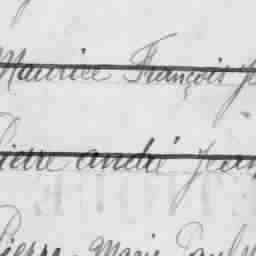 Maurice François
Pierre andré Jean
Pierre Marie Paul